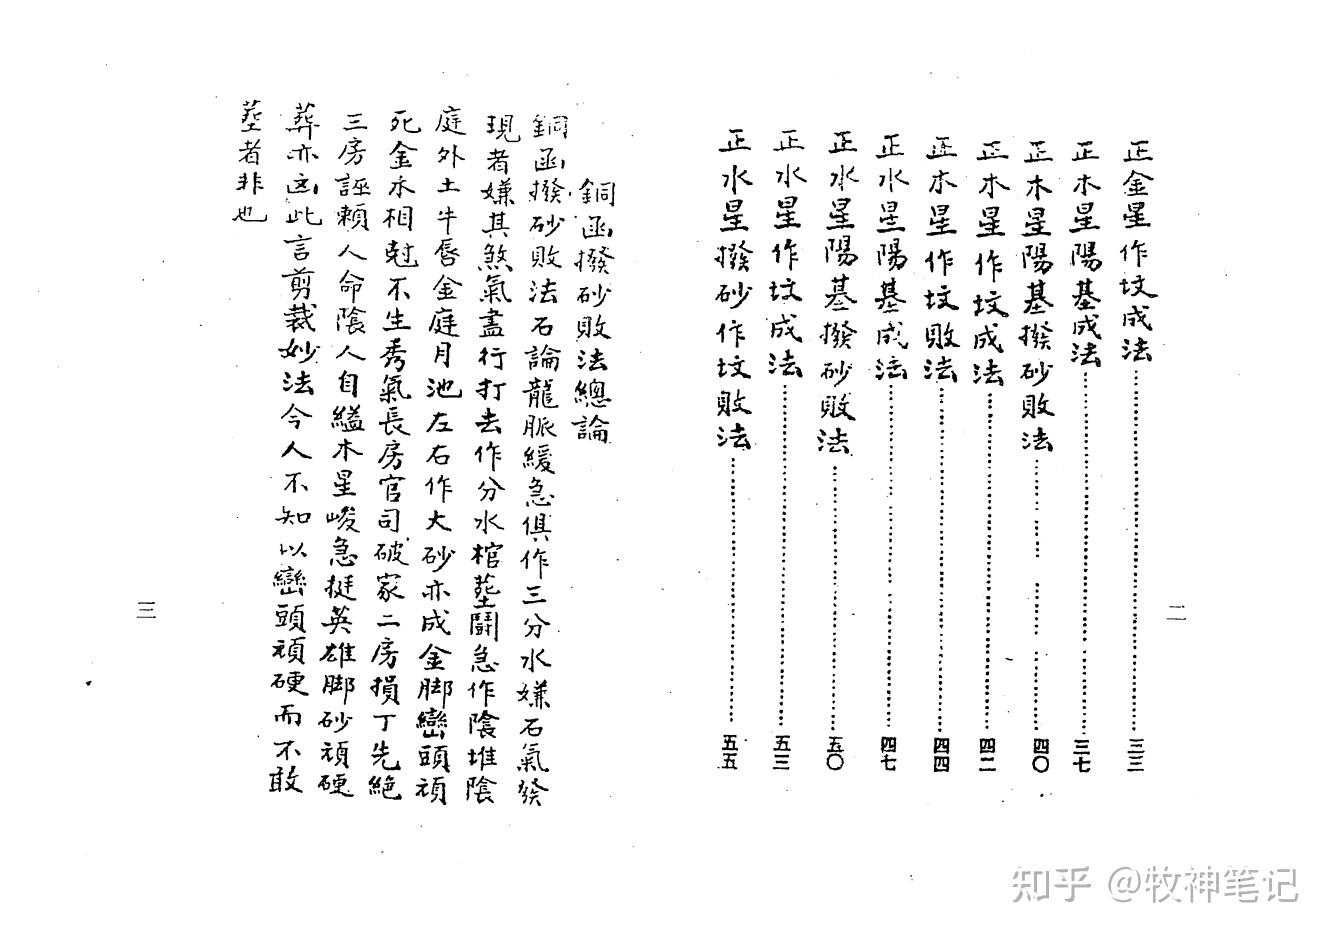 正金星作坟成法 三三
正木星陽基成法 三七
正木星陽基撥砂敗法 四〇
正木星作坟成法 四二
正木星作坟敗法 四四
正水星陽基成法 四七
正水星陽基撥砂敗法 五〇
正水星作坟成法 五三
正水星撥砂作坟敗法 五五
二
銅函撥砂敗法總論
銅函撥砂敗法石論龍脈緩急俱作三分水嫌石氣發
現者嫌其煞氣盡行打去作分水棺塟鬪急作陰堆陰
庭外土牛唇金庭月池左右作大砂亦成金脚巒頭頑
死金木相尅不生秀氣長房官司破家二房損丁先絕
三房誣賴人命陰人自縊木星峻急挺英雄脚砂頑硬
葬亦凶此言剪裁妙法今人不知以巒頭頑硬而不敢
塟者非也
三
知乎 @牧神笔记